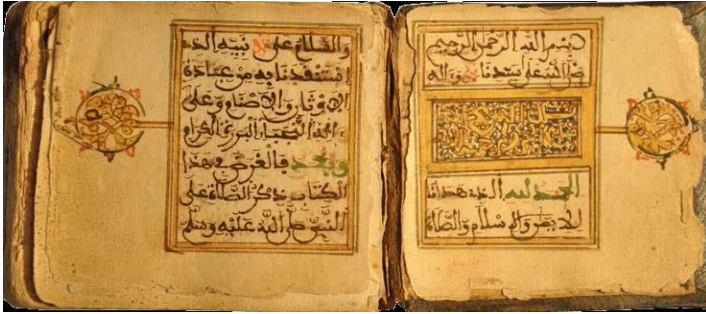 بسم الله الرحمن الرحيم
صلى الله على سيدنا محمد وءاله
الحمد لله الذي هدانا
للايمن والاسلام والصلاة
والسلام على محمد نبيه الذي
استنقذنا به من عبادة
الاوثان والاصنام وعلى
ءاله النجباء البررة الكرام
وبعد فالغرض في هذا
الكتاب ذكر الصلاة على
النبي صلى الله عليه وسلم